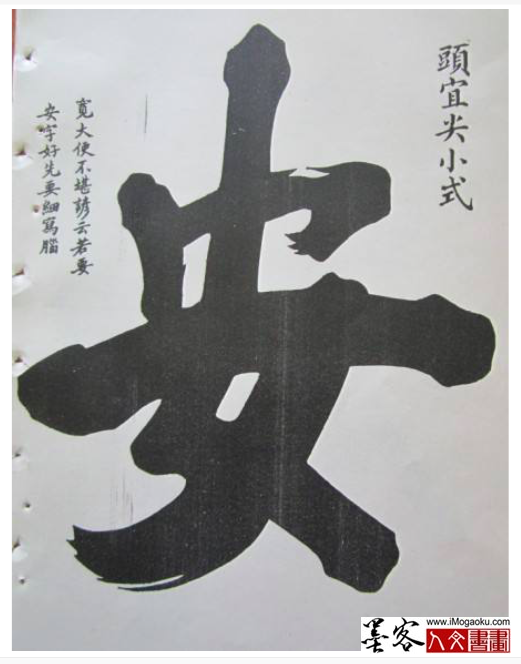 頭宜尖小式
安
寛大便不堪諺云若要
安字好先要細寫腦
墨客
www.iMogaoku.com
人文書畫